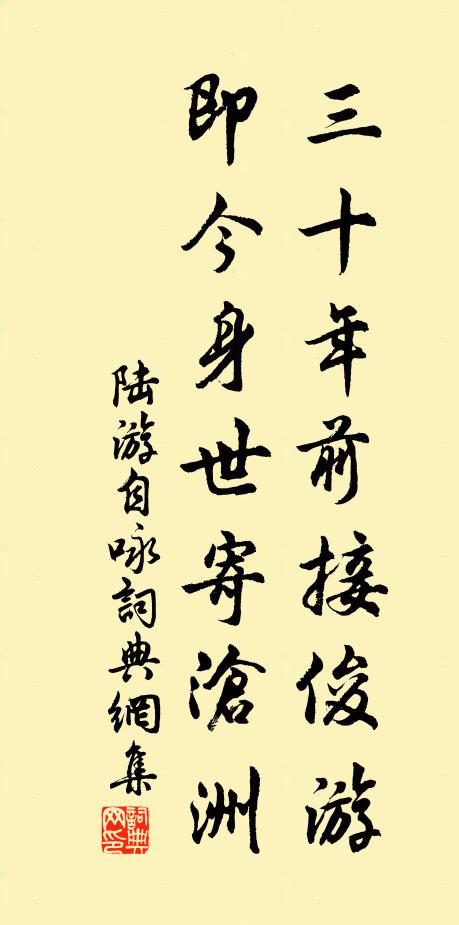 三十年前接俊游
即今身世寄滄洲
陆游自咏詞典網集
詞典網印